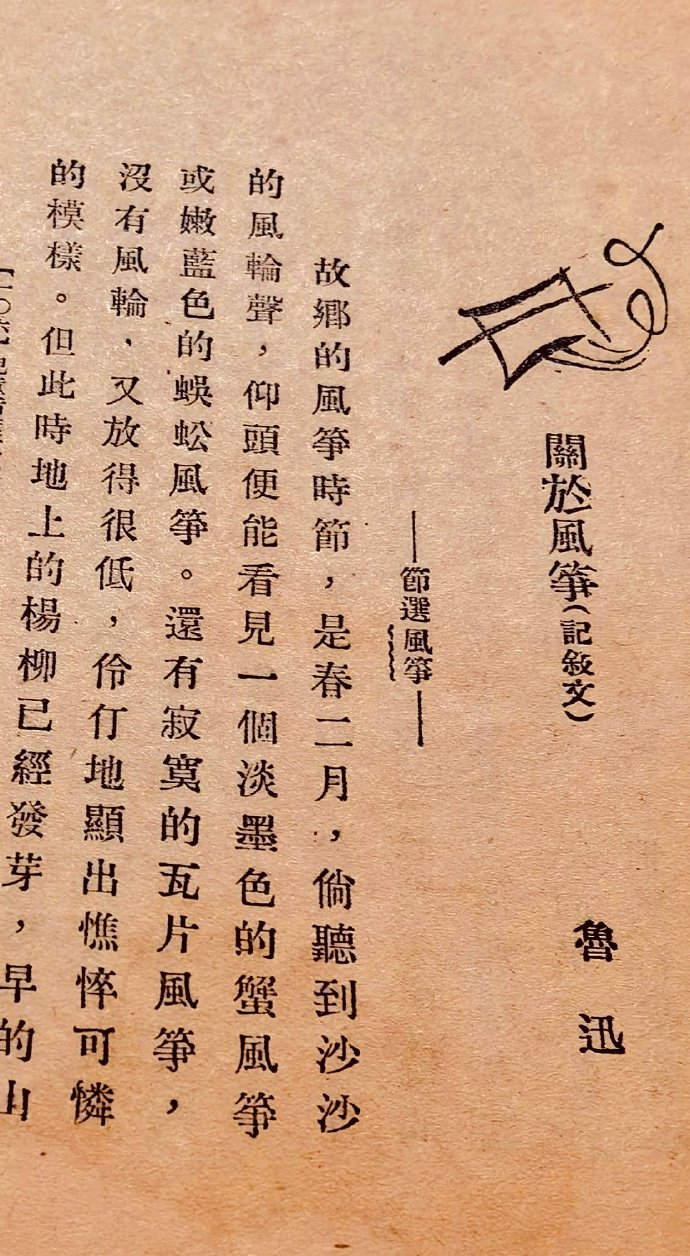 關於風箏（記敘文）
魯迅
——節選風箏——
故鄉的風箏時節，是春二月，倘聽到沙沙
的風輪聲，仰頭便能看見一個淡墨色的蟹風箏
或嫩藍色的蜈蚣風箏。還有寂寞的瓦片風箏，
沒有風輪，又放得很低，伶仃地顯出憔悴可憐
的模樣。但此時地上的楊柳已經發芽，早的山